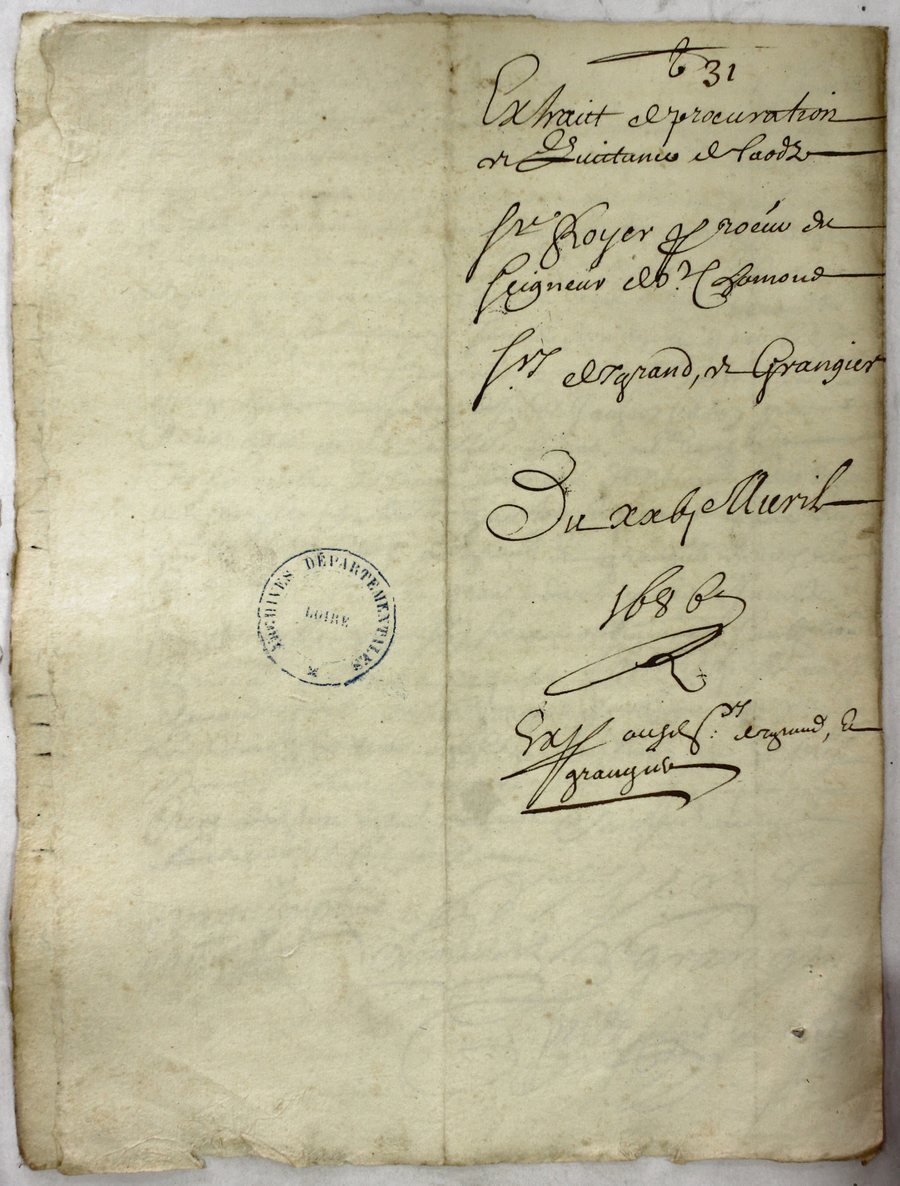 b 31
Extraict de procuration
et Quittance de laodz
Sr Royer procur du
Seigneur de St Chamond
Srs degrand, et Grangier
Du xxbj Auril
1686
Exp ausd Srs degrand, et
grangier
ARCHIVES DÉPARTEMENTALES
LOIRE